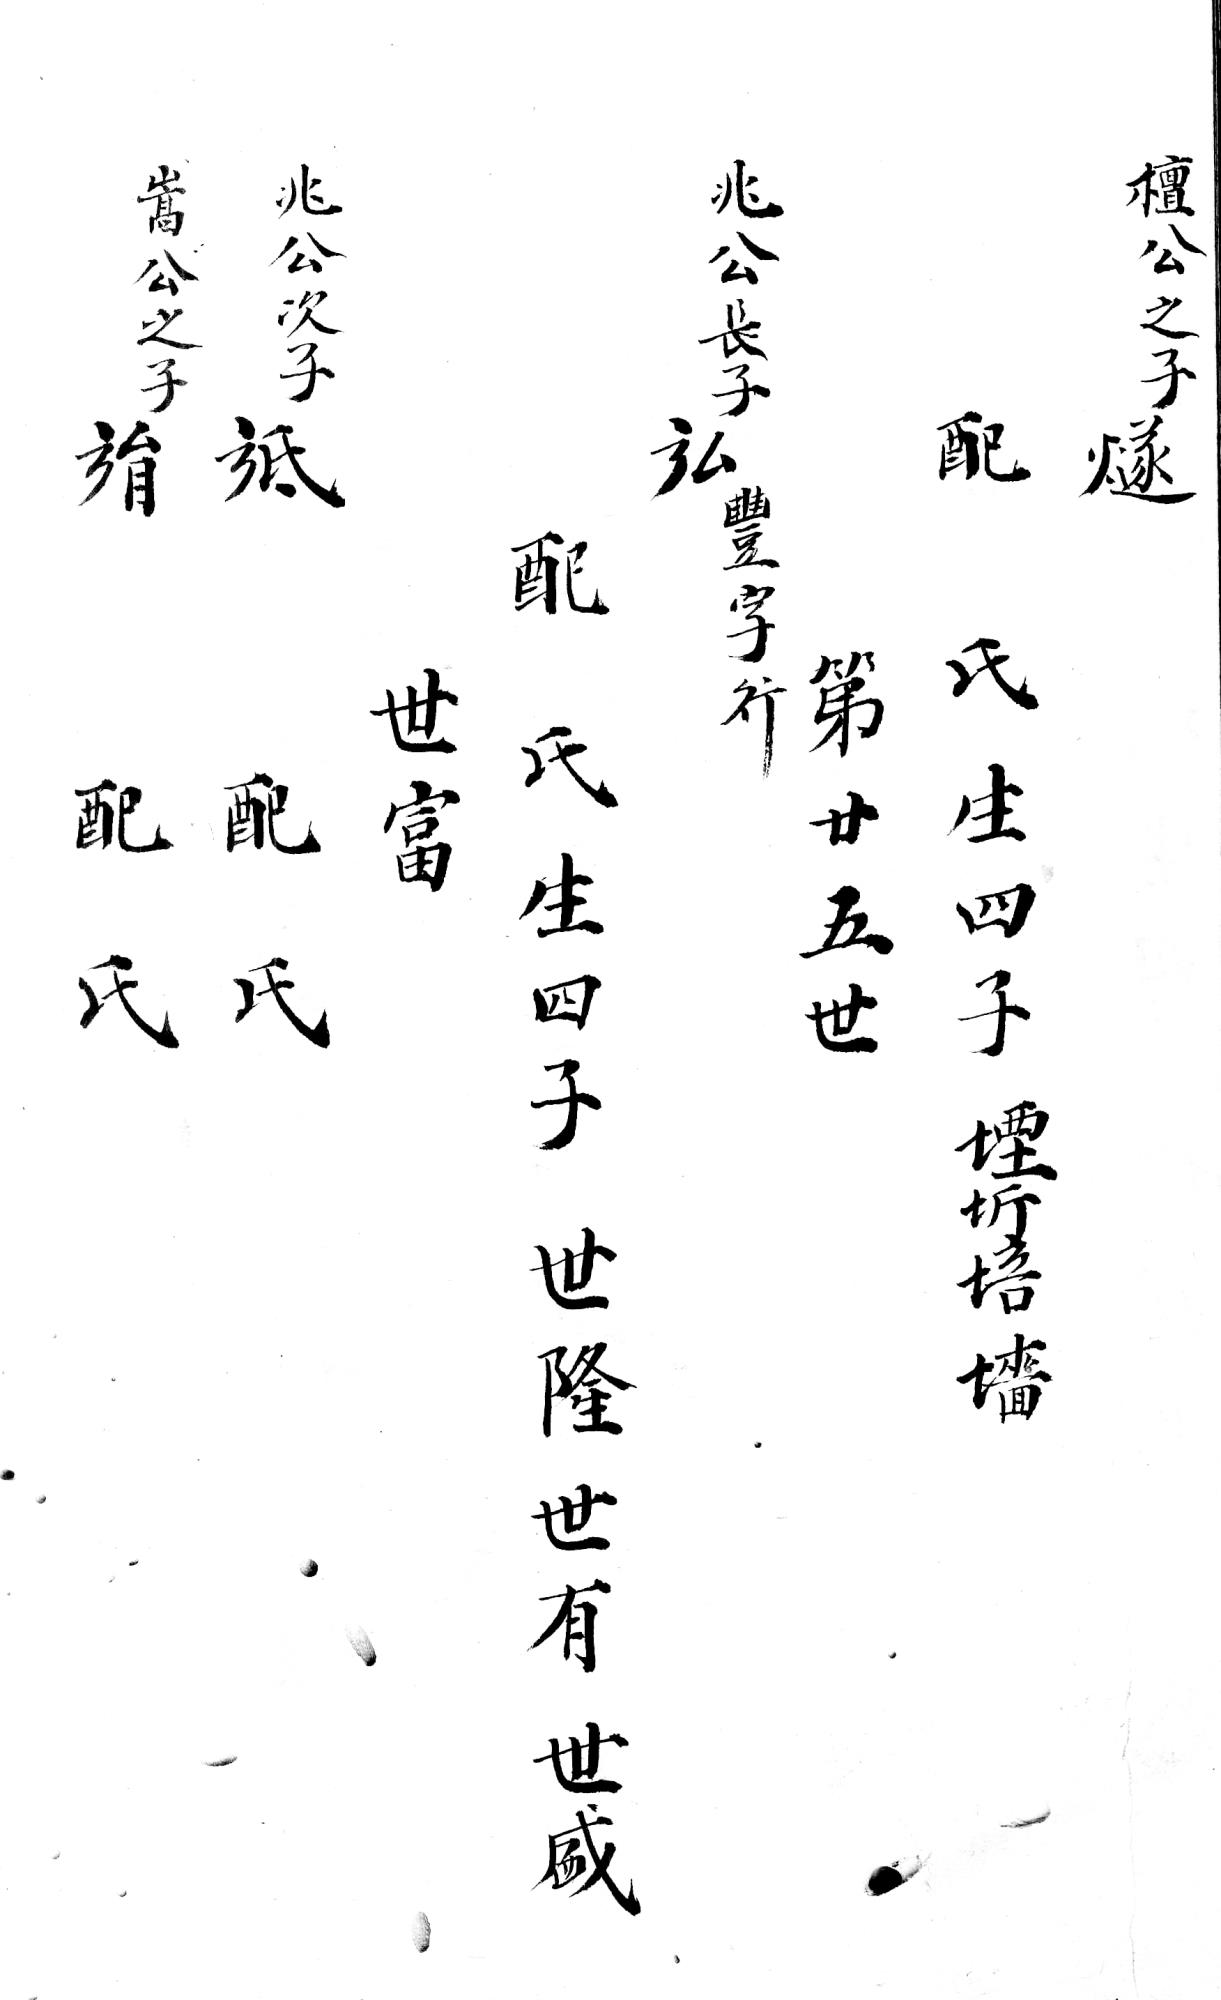 檀公之子 燧
配 氏生四子 堙圻培墻
第廿五世
兆公長子 弘 豐字行
配 氏生四子 世隆 世有 世盛
世富
兆公次子 弤 配 氏
嵩公之子 配 氏